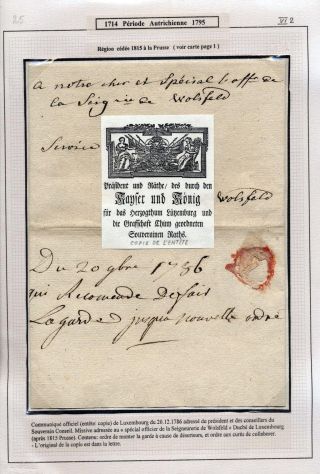 25
1714 Période Autrichienne 1795
VI 2
Région cédée 1815 à la Prusse ( voir carte page 1 )
a notre cher et Spécial l'off. de
la Seig.rie de Wolsfeld
Service
Präsident und Räthe/ des durch den
Kayser und König
für das Herzogthum Lützenburg und
die Graffschaft Chiny geordneten
Souverainen Raths.
COPIE DE L'ENTÊTE
Wolsfeld
Du 20 xbre 1786
qui Recomande de fair
La garde jusqu'a nouvelle ordre
Communiqué officiel (entête: copie) de Luxembourg du 20.12.1786 adressé du président et des conseillers du
Souverain Conseil. Missive adressée au « spécial officier de la Seigneurerie de Wolsfeld » Duché de Luxembourg
(après 1815 Prusse). Contenu: ordre de monter la garde à cause de déserteurs, et ordre aux curés de collaborer.
- L'original de la copie est dans la lettre.